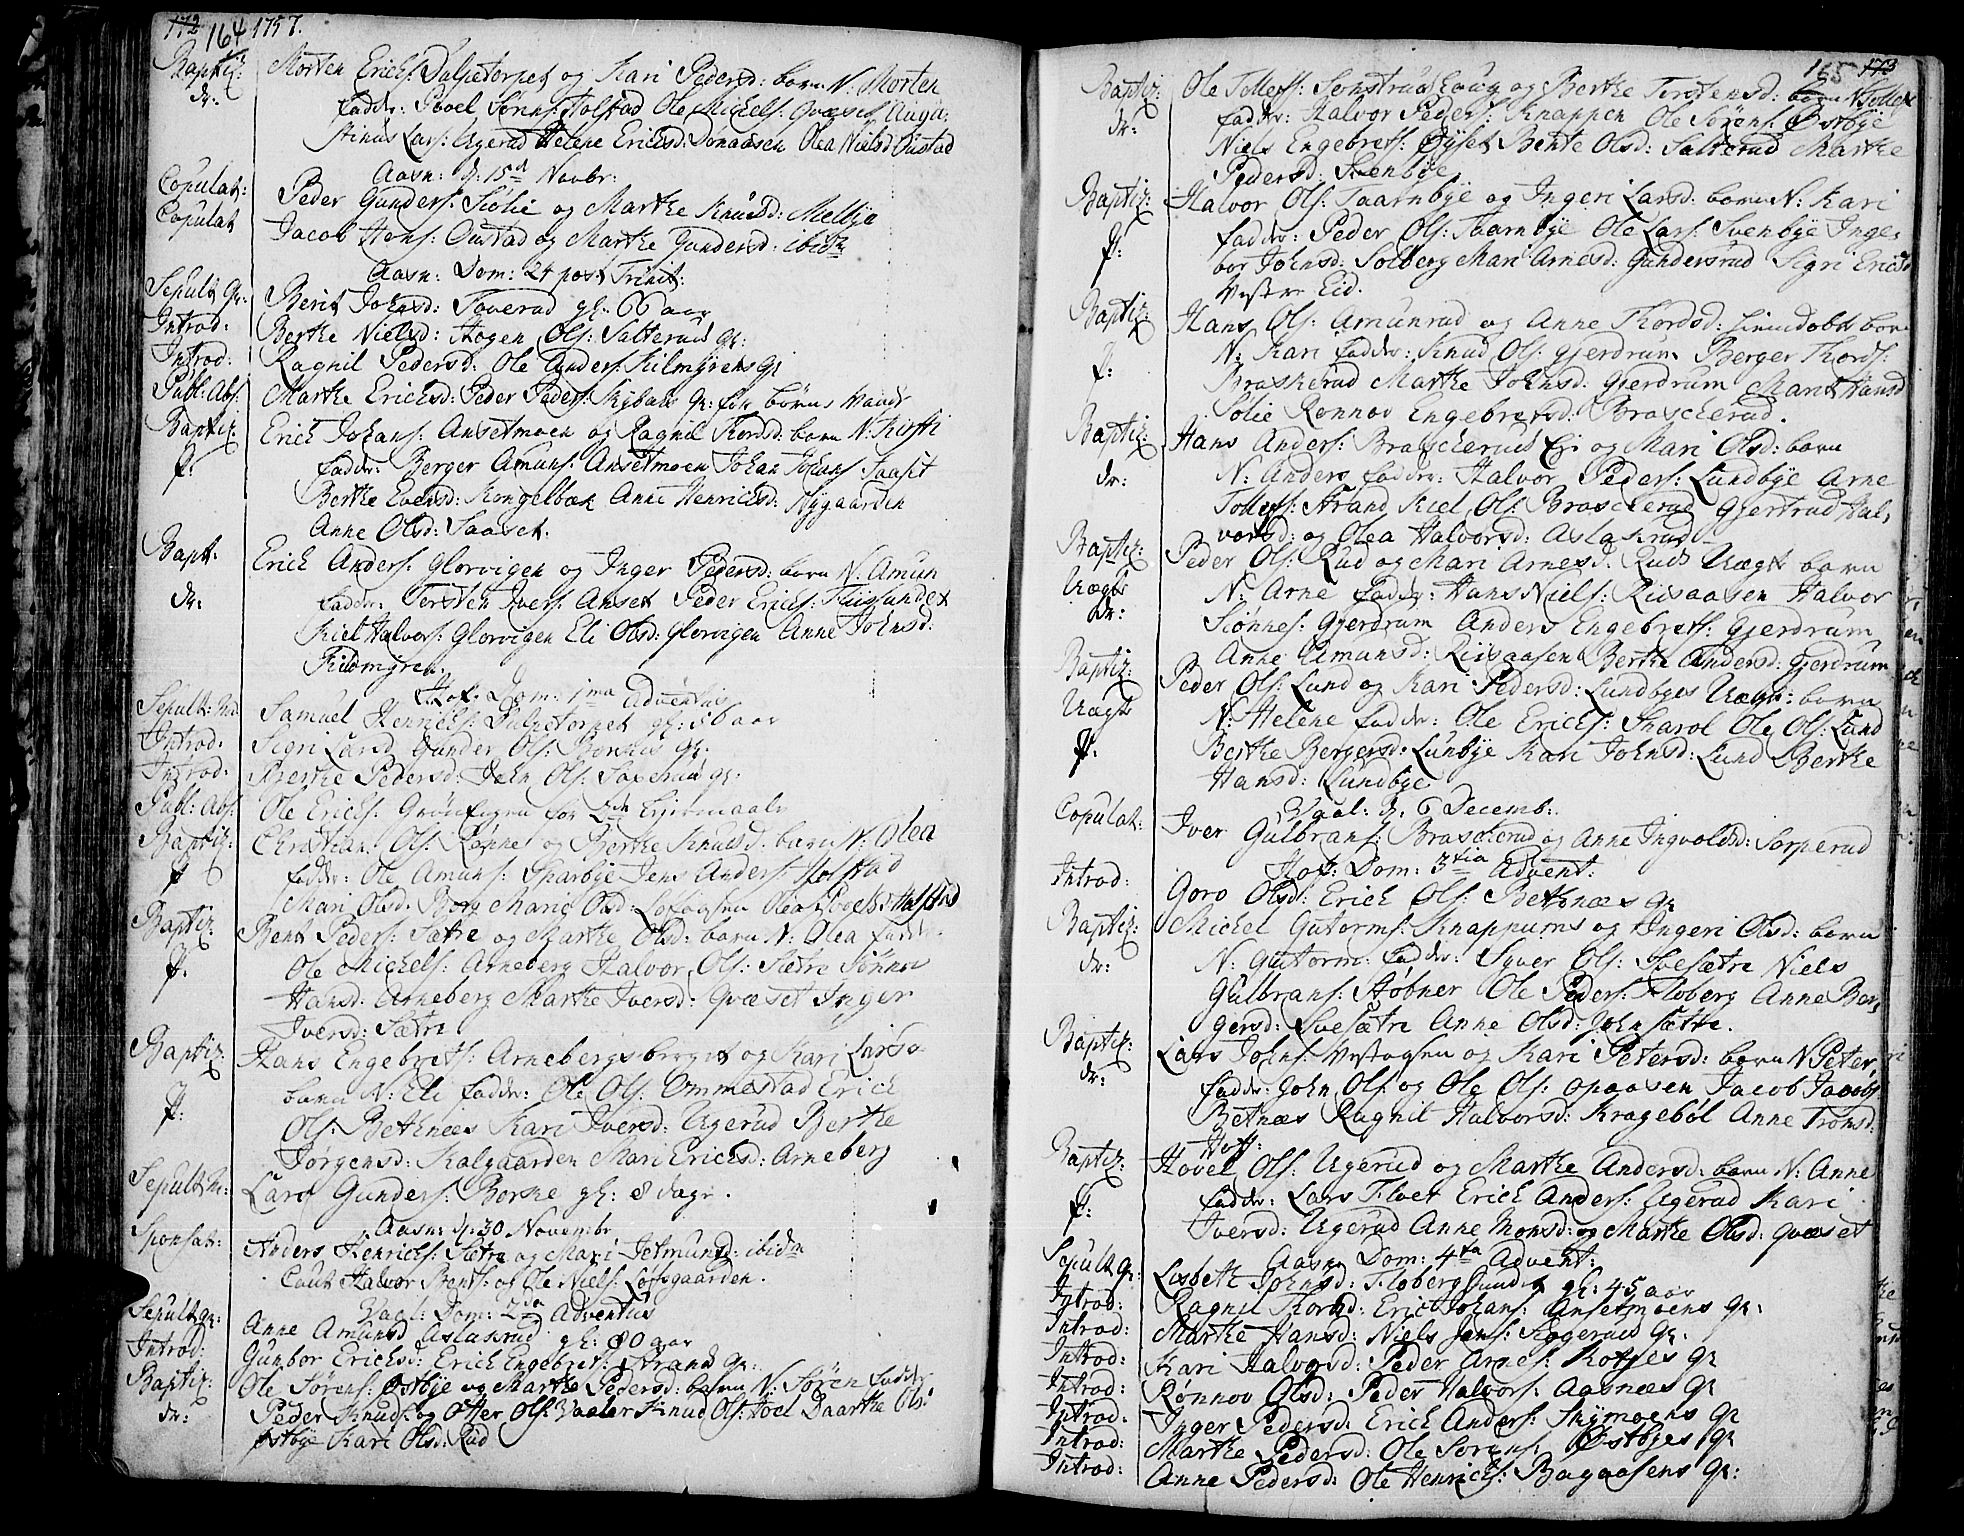 172 164 1757.
Baptiz: Morten Erichs: Dulpetorpet og Kari Peders d: barn N: Morten
dr: fadde: Povel Sønnes: Holstad Ole Michels: Qvæset Auga,
stinus Lars: Ugerud Helene Ericksd: Donaasen Olea Nielsd: Oustad
Aasn: d: 15d Novbr:
Copulat: Peder Gunders: Solie og Marthe Knudsd: Melbye
Copulat Jacob Hens: Oustad og Marthe Gundersd: ibidm
Aasn: Dom: 24 post Trinit:
Sepult Q: Berit Johnsd: Soverud gl: 66 aar
Introd: Berthe Nielsd: Hogen Ols: Salterud Q:
Introd: Ragnil Pedersd: Ole Anders: Kilmyrens Q:
Publ: Abs: Marthe Ericksd: Peder Peders: Skybaks Q: for børns Vande
Baptiz: Erich Johans: Ansetmoen og Ragnil Thordsd: barn N: Kirsti
p: fadde: Berger Amuns: Ansetmoen Johan Johans: Saaset
Berthe Evensd: Kongelbæk Anne Henrichsd: Nygaarden
Anne Olsd: Saaset.
Bapt: Erich Anders: Glorvigen og Inger Pedersd: barn N: Amun
dr: fadde: Torsten Ivers: Anset Peder Erichs: Flisundet
Kiel Halvors: Glorvigen Eli Olsd: Glorvigen Anne Johnsd:
Kildmyren.
Hof: Dom: 1ma Adventus
Sepult: M: Samuel Hennes: Dulpetorpet gl: 56 aar
Introd: Sigri Larsd: Gunder Ols: Borskes Q:
Introd: Berthe Pedersd: John Ols: Saxerud Q:
Publ: Abs: Ole Erichs: Grønfigen for 2de Leiermaale
Baptiz: Christian Ols: Rophe og Berthe Knudsd: barn N: Olea
p fadde: Ole Amuns: Sparbye Jens Anders: Holstad
Mari Olsd: Berg Marie Olsd: Lofaasen Olea Povelsd: Holstad
Baptiz: Bent Peders: Sætre og Marthe Olsd: barn N: Olea fadde:
p. Ole Michels: Arneberg Halvor Ols: Sætre Sønnov
Hansd: Arneberg Marthe Iversd: Qvæset Inger
Iversd: Sætre
Baptiz: Hans Engebrets: Arnebergsberget og Kari Larsd:
barn N: Eli fadde: Ole Ols: Ommestad Erich
p: Ols: Bethnæs Kari Iversd: Ugerud Berthe
Jørgensd: Kalgaarden Mari Ericksd: Arneberg
Sepult M: Lars Gunders: Borske gl: 8 dage.
Aasn: d: 30 Novembr
Sponsat: Anders Henrichs: Sætre og Mari Jetmundsd: ibidm
Caut: Halvor Bents: og Ole Niels: Løfsgaarden.
Vaal: Dom: 2da Adventus
Sepult Q: Anne Amunsd Aslaxrud gl: 80 aar
Introd: Gunbor Ericksd: Erich Engebrets: Strands Q:
Baptiz: Ole Sørens: Østbye og Marthe Pedersd: barn N: Søren fadde
dr: Peder Knuds: og Otter Ols: Vaaler Knud Ols: Hoel Daarthe Ols:
Østbye Kari Olsd: Rud
165 173
Baptiz: Ole Tollefs: Senstrud Evug og Berthe Torstensd: barn N: Tollef
dr: fadde: Halvor Peders: Knappen Ole Sørens: Østbye
Niels Engebrets: Øyset Bente Olsd: Salterud Marthe
Pedersd: Svenbye
Baptiz: Halvor Ols: Taarnbye og Ingeri Larsd: barn N: Kari
p: fadde: Peder Ols: Taarnbye Ole Lars: Svenbye Inge,
bor Johnsd: Solberg Mari Arnesd: Gundersrud Sigri Ericsd
Vestre Eid.
Baptiz: Hans Ols: Amunrud og Anne Thordsd: hiemdøbt barn
N: Kari fadde: Knud Ols: Gjerdrum Berger Thords:
p: Braskerud Marthe Johnsd: Gjerdrum Marit Hansd
Solie Rønnov Engebretsd: Brascherud.
Baptiz: Hans Anders: Brascherud Ei og Mari Olsd: barn
dr: N: Anders fadde: Halvor Peders: Lundbye Arne
Tollefs: Strand Kiel Ols: Brascherud Gjertrud Hal,
vorsd: og Olea Halvorsd: Aslaksrud
Baptiz: Peder Ols: Rud og Mari Arnesd: Ruds Uægt barn
Uægte N: Arne fadde: Hans Niels: Riisaasen Halvor
dr: Siønnes: Gjerdrum Anders Engebrets: Gjerdrum
Anne Amunsd: Riisaasen Berthe Andersd: Gjerdrum
Baptiz: Peder Ols: Lund og Kari Pedersd: Lundbyes Uægte: barn
Uægte N: Helene fadde: Ole Erichs: Skarol Ole Ols: Lund
p: Berthe Bergersd: Lunbye Kari Johnsd: Lund Berthe
Hansd: Lundbye
Vaal: d: 6 Decemb:
Copulat: Iver Gulbrans: Brascherud og Anne Ingvoldsd: Sorperud
Hof: Dom: 3tia Advent:
Introd: Goro Olsd: Erich Ols: Bethnæs Q:
Baptiz: Michel Gutorms: Knappums og Ingeri Olsd: barn
dr: N: Gutorm: fadde: Syver Ols: Svesætre Niels
Gulbrans: Støbner Ole Peders: Floberg Anne Ber,
gersd: Svesætre Anne Olsd: Johnsætre.
Baptiz: Lars Johns: Vestaasen og Kari Petersd: barn N: Peter,
dr: fadde: John Ols: og Ole Ols: Opaasen Jacob Jacobs
Betnæs Ragnil Halvorsd: Kragebøl Anne Tronsd:
Hoff:
Baptiz: Hovel Ols: Ugerud og Marthe Andersd: barn N: Anne
p: fadde: Lars Tilver Erich Anders: Ugerud Kari
Iversd: Ugerud Anne Monsd: og Marthe Olsd: Qvæset
Aasn: Dom: 4ta Advent:
Sepult Q: Lisbeth Johnsd: Floberg Gundet gl: 45 aar
Introd: Ragnil Thordsd: Erich Johans: Ansetmoens Q:
Introd: Marthe Hansd: Niels Jens: Skyggerud Q:
Introd: Kari Halvorsd: Peder Arnes: Kotjes Q:
Introd: Rønnov Olsd: Peder Halvors: Aasnæs Q:
Introd: Inger Pedersd: Erich Anders: Skymoens Q:
Introd: Marthe Pedersd: Ole Sørens: Østbyes Q:
Introd: Anne Pedersd: Ole Henrichs: Bagaasens Q: